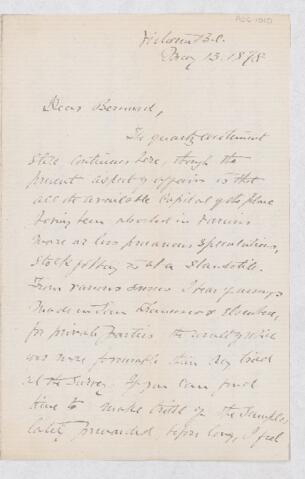 Victoria B.C.
May 13. 1878
Dear Bernard,
The quartz excitement
still continues here, though the
present aspect of affairs is that
all the available capital of the place
having been absorbed in various
more or less precarious speculations,
stock jobbing is at a standstill.
From various sources I hear of assays
made in San Francisco & elsewhere,
for private parties the result of which
was more favourable than any tried
at the Survey. If you can find
time to make trial of the samples
lately forwarded before long, I feel